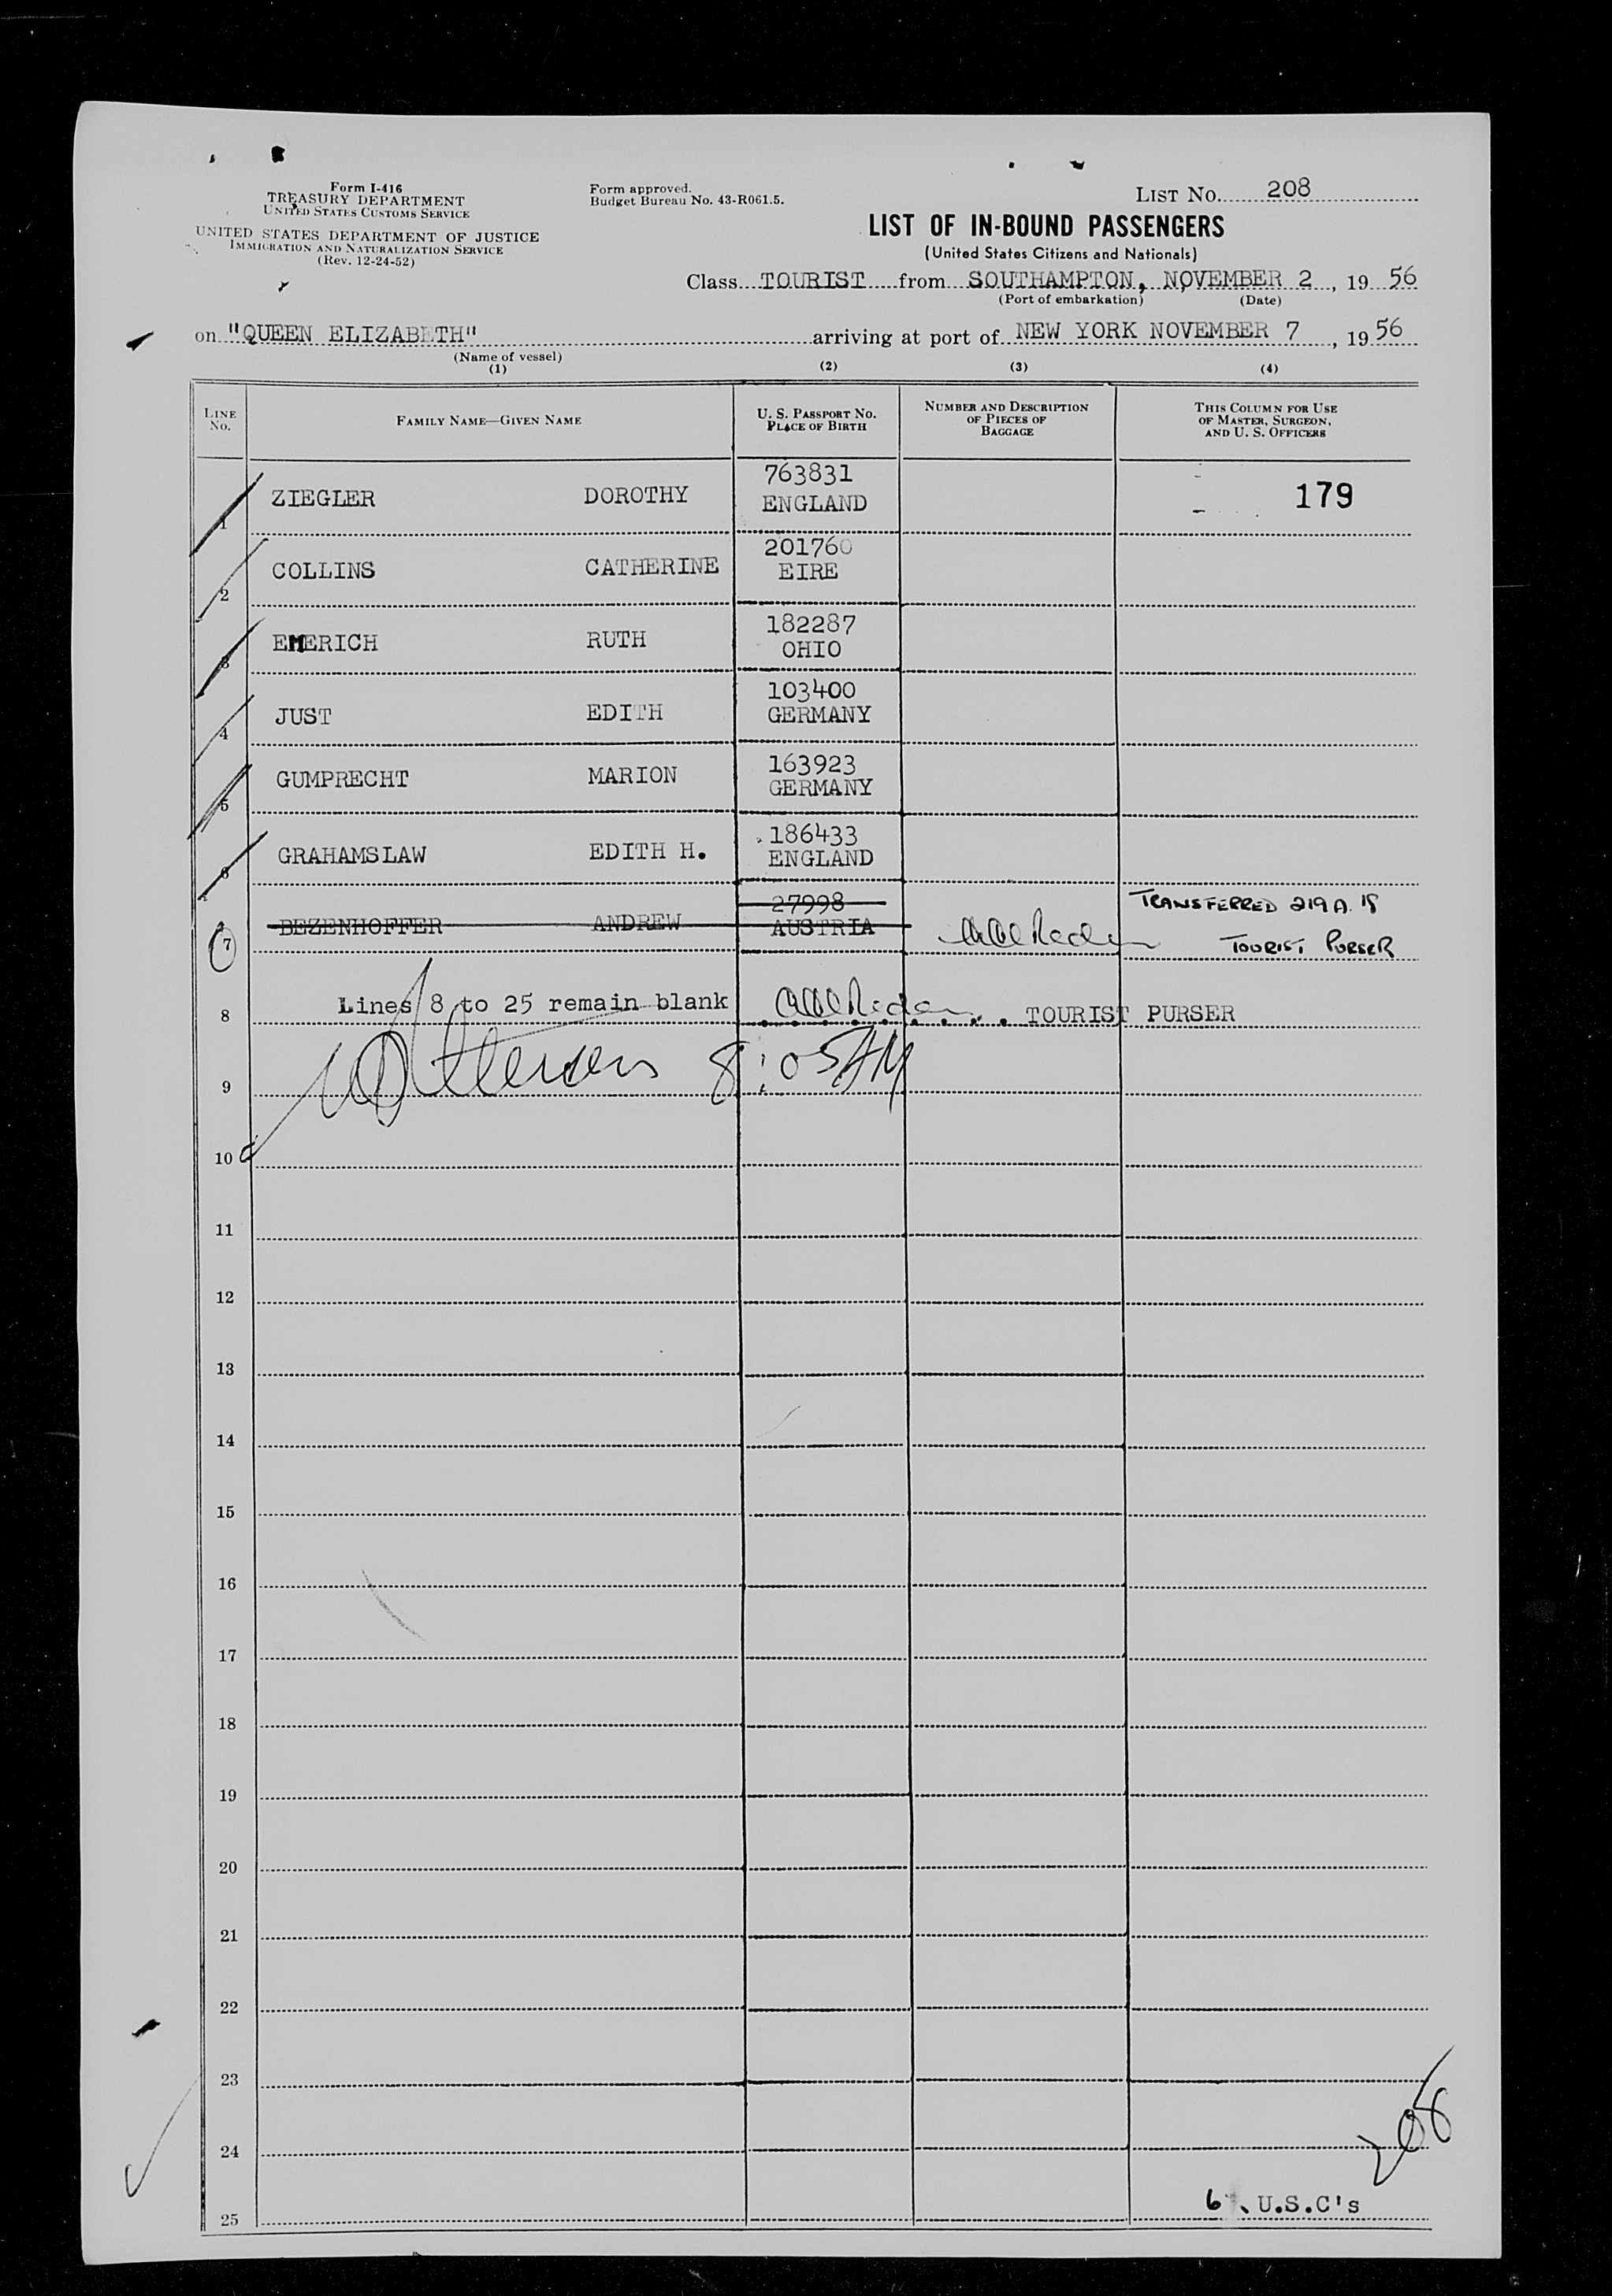 Form I-416
TREASURY DEPARTMENT
UNITED STATES CUSTOMS SERVICE
UNITED STATES DEPARTMENT OF JUSTICE
IMMIGRATION AND NATURALIZATION SERVICE
(Rev. 12-24-52)
Form approved.
Budget Bureau No. 43-R061.5.
LIST NO. 208
LIST OF IN-BOUND PASSENGERS
(United States Citizens and Nationals)
Class TOURIST from SOUTHAMPTON, NOVEMBER 2, 19 56
(Port of embarkation) (Date)
on "QUEEN ELIZABETH" arriving at port of NEW YORK NOVEMBER 7, 19 56
(Name of vessel)
(1) (2) (3) (4)
LINE NO.
FAMILY NAME—GIVEN NAME
U. S. PASSPORT NO.
PLACE OF BIRTH
NUMBER AND DESCRIPTION
OF PIECES OF
BAGGAGE
THIS COLUMN FOR USE
OF MASTER, SURGEON,
AND U. S. OFFICERS
1 ZIEGLER DOROTHY 763831
ENGLAND
179
2 COLLINS CATHERINE 201760
EIRE
3 EMERICH RUTH 182287
OHIO
4 JUST EDITH 103400
GERMANY
5 GUMPRECHT MARION 163923
GERMANY
6 GRAHAMSLAW EDITH H. 186433
ENGLAND
7 BEZENHOFFER ANDREW 27998
AUSTRIA
TRANSFERRED 219A. 18
TOURIST PURSER
8 Lines 8 to 25 remain blank TOURIST PURSER
9 8:05AM
10
11
12
13
14
15
16
17
18
19
20
21
22
23
24
208
6 U.S.C's
25